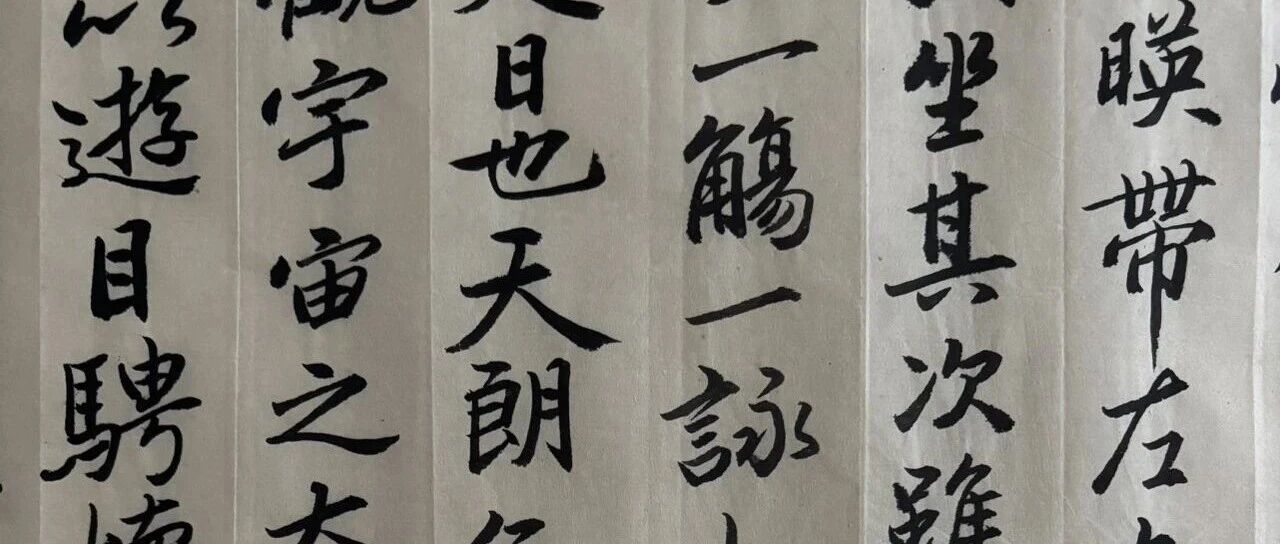 暎帶左
坐其次雖
一觴一詠
是日也天朗
觀宇宙之大
以遊目騁懷